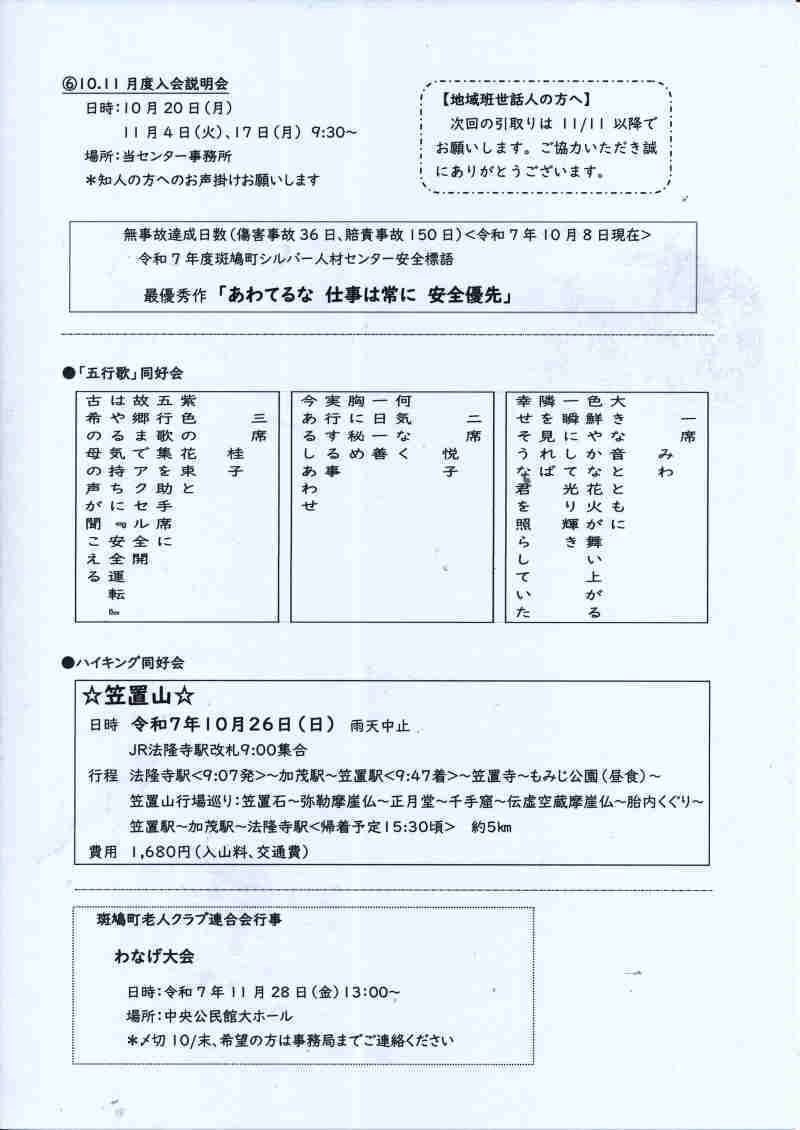 ⑥10.11月度入会説明会
日時:10月20日(月)
11月4日(火)、17日(月) 9:30~
場所:当センター事務所
*知人の方へのお声掛けお願いします
【地域班世話人の方へ】
次回の引取りは 11/11 以降で
お願いします。ご協力いただき誠
にありがとうございます。
無事故達成日数(傷害事故36日、賠責事故150日)<令和7年10月8日現在>
令和7年度斑鳩町シルバー人材センター安全標語
最優秀作 「あわてるな 仕事は常に 安全優先」
●「五行歌」同好会
一席
みわ
大きな音とともに
色鮮やかな花火が舞い上がる
一瞬にして 光り輝き
隣を見れば
幸せそうな君を照らしていた
二席
悦子
何気なく
一日一善
胸に秘め
実行する事
今あるしあわせ
三席
桂子
紫色の花束と
五行歌集を助手席に
故郷までアクセル全開
はやる気持ちに〝安全運転〟
古希の母の声が聞こえる
●ハイキング同好会
☆笠置山☆
日時 令和7年10月26日(日) 雨天中止
JR法隆寺駅改札9:00集合
行程 法隆寺駅<9:07発>~加茂駅~笠置駅<9:47着>~笠置寺~もみじ公園(昼食)~
笠置山行場巡り:笠置石~弥勒摩崖仏~正月堂~千手窟~伝虚空蔵摩崖仏~胎内くぐり~
笠置駅~加茂駅~法隆寺駅<帰着予定15:30頃> 約5km
費用 1,680円(入山料、交通費)
斑鳩町老人クラブ連合会行事
わなげ大会
日時:令和7年11月28日(金)13:00~
場所:中央公民館大ホール
*〆切10/末、希望の方は事務局までご連絡ください